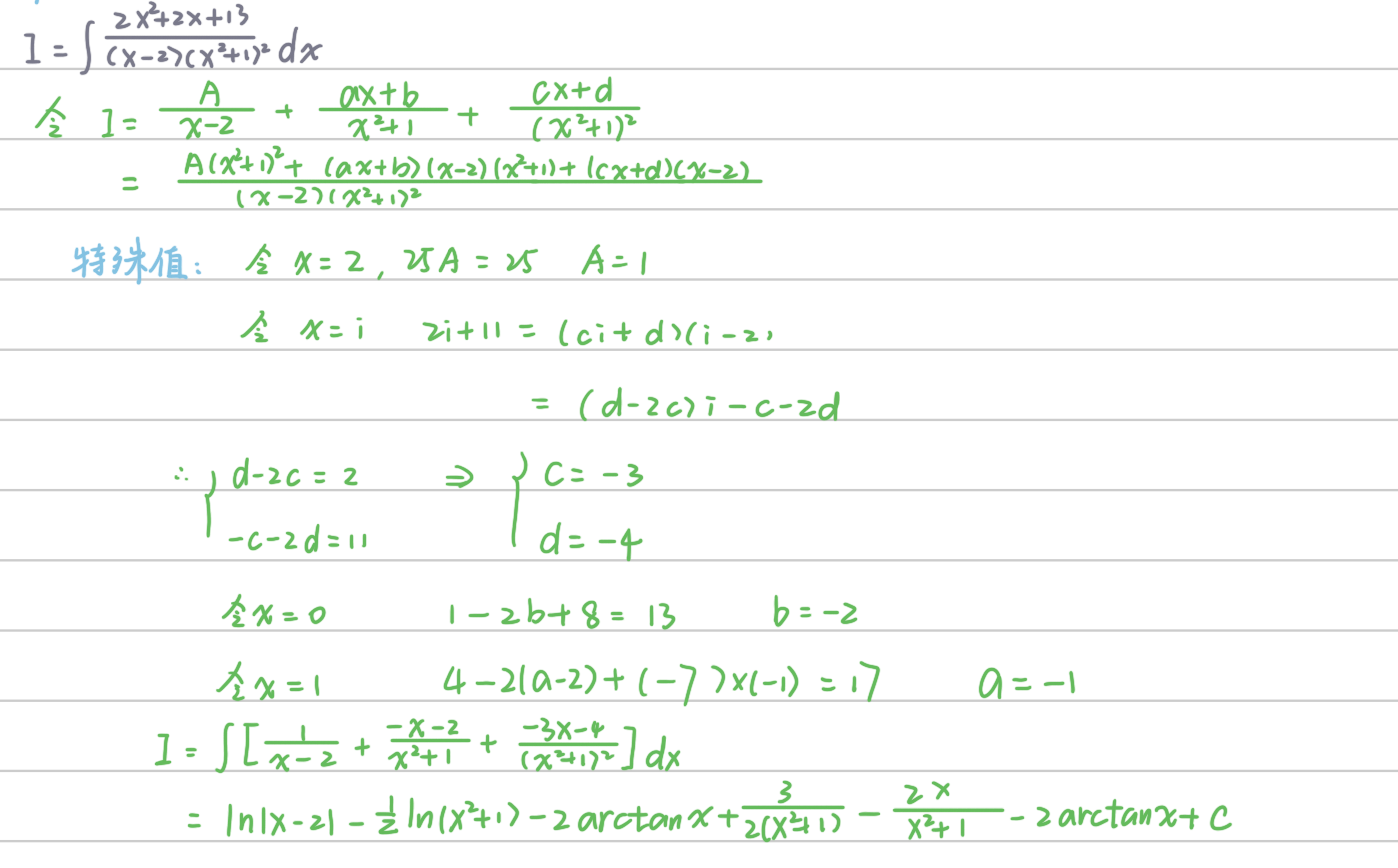 I = ∫ (2x²+2x+13)/((x-2)(x²+1)²) dx
令 I = A/(x-2) + (ax+b)/(x²+1) + (cx+d)/(x²+1)²
= (A(x²+1)² + (ax+b)(x-2)(x²+1) + (cx+d)(x-2))/((x-2)(x²+1)²)
特殊值: 令 x = 2, 25A = 25 A = 1
令 x = i 2i+11 = (ci+d)(i-2)
= (d-2c)i - c - 2d
∴ { d-2c = 2 ⇒ { c = -3
-c-2d = 11 d = -4
令 x = 0 1 - 2b + 8 = 13 b = -2
令 x = 1 4 - 2(a-2) + (-7)×(-1) = 17 a = -1
I = ∫ [1/(x-2) + (-x-2)/(x²+1) + (-3x-4)/(x²+1)²] dx
= ln|x-2| - 1/2 ln(x²+1) - 2 arctan x + 3/(2(x²+1)) - 2x/(x²+1) - 2 arctan x + C